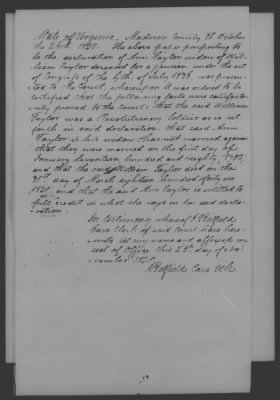 State of Virginia Madison County SS October
the 26th 1848. The above paper purporting to
be the declaration of Ann Taylor widow of Wil-
liam Taylor deceased for a pension under the act
of Congress of the 4th of July 1836 was presen-
ted to the Court, whereupon it was ordered to be
certified that the following facts were satisfact-
orily proved to the court: that the said William
Taylor was a Revolutionary Soldier as is set
forth in said declaration that said Ann
Taylor is his widow has not married again
that they were married on the first day of
January seventeen hundred and eighty
and that the said William Taylor died on the
31st day of March eighteen hundred forty one
1841, and that the said Ann Taylor is entitled to
full credit in what she says in her said decla-
ration.
In testimony whereof I Belfield
Cave Clerk of said court have here-
unto set my name and affixed my
seal of office this 25th day of No-
vember 1848
Belfield Cave